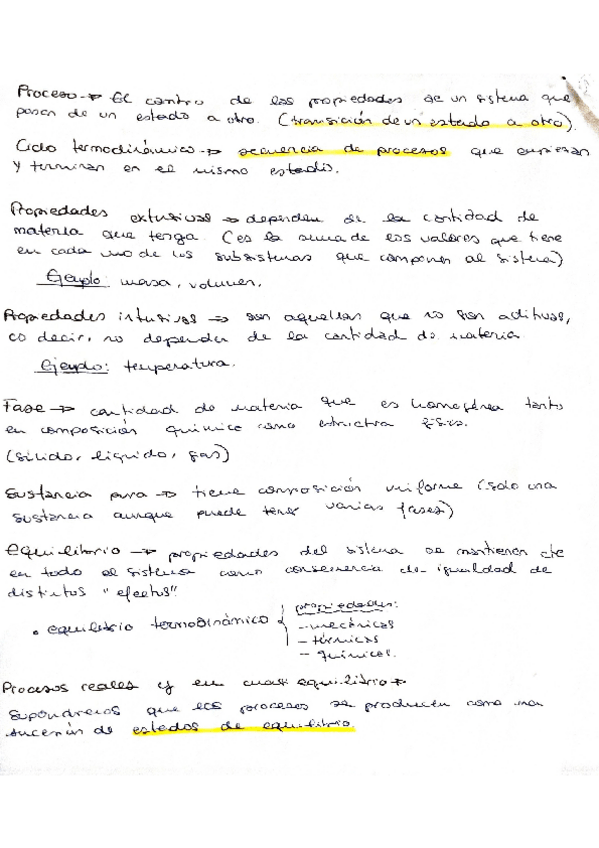 Proceso → El cambio de las propiedades de un sistema que
pasan de un estado a otro. (transición de un estado a otro).
Ciclo termodinámico → secuencia de procesos que empiezan
y terminan en el mismo estado.
Propiedades extensivas → dependen de la cantidad de
materia que tenga. (es la suma de los valores que tiene
en cada uno de los subsistemas que componen al sistema)
Ejemplo: masa, volumen.
Propiedades intensivas → son aquellas que no son aditivas,
es decir, no dependen de la cantidad de materia.
Ejemplo: temperatura.
Fase → cantidad de materia que es homogénea tanto
en composición química como estructura física.
(sólido, líquido, gas)
Sustancia pura → tiene composición uniforme (solo una
sustancia aunque puede tener varias fases)
Equilibrio → propiedades del sistema se mantienen cte
en todo el sistema como consecuencia de igualdad de
distintos "efectos".
• equilibrio termodinámico { propiedades:
- mecánicas
- térmicas
- químicas.
Procesos reales y en cuasi equilibrio →
Supondremos que los procesos se producen como una
sucesión de estados de equilibrio.